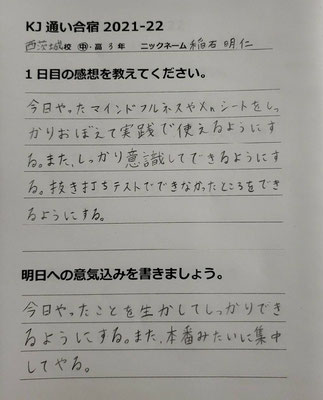 KJ 通い合宿 2021-22
西茨城校 中・高 3年 ニックネーム 稲石 明仁
1日目の感想を教えてください。
今日やったマインドフルネスやXnシートをしっ
かりおぼえて実践で使えるようにす
る。また、しっかり意識してできるようにす
る。抜き打ちテストでできなかったところをでき
るようにする。
明日への意気込みを書きましょう。
今日やったことを生かしてしっかりでき
るようにする。また、本番みたいに集中
してやる。